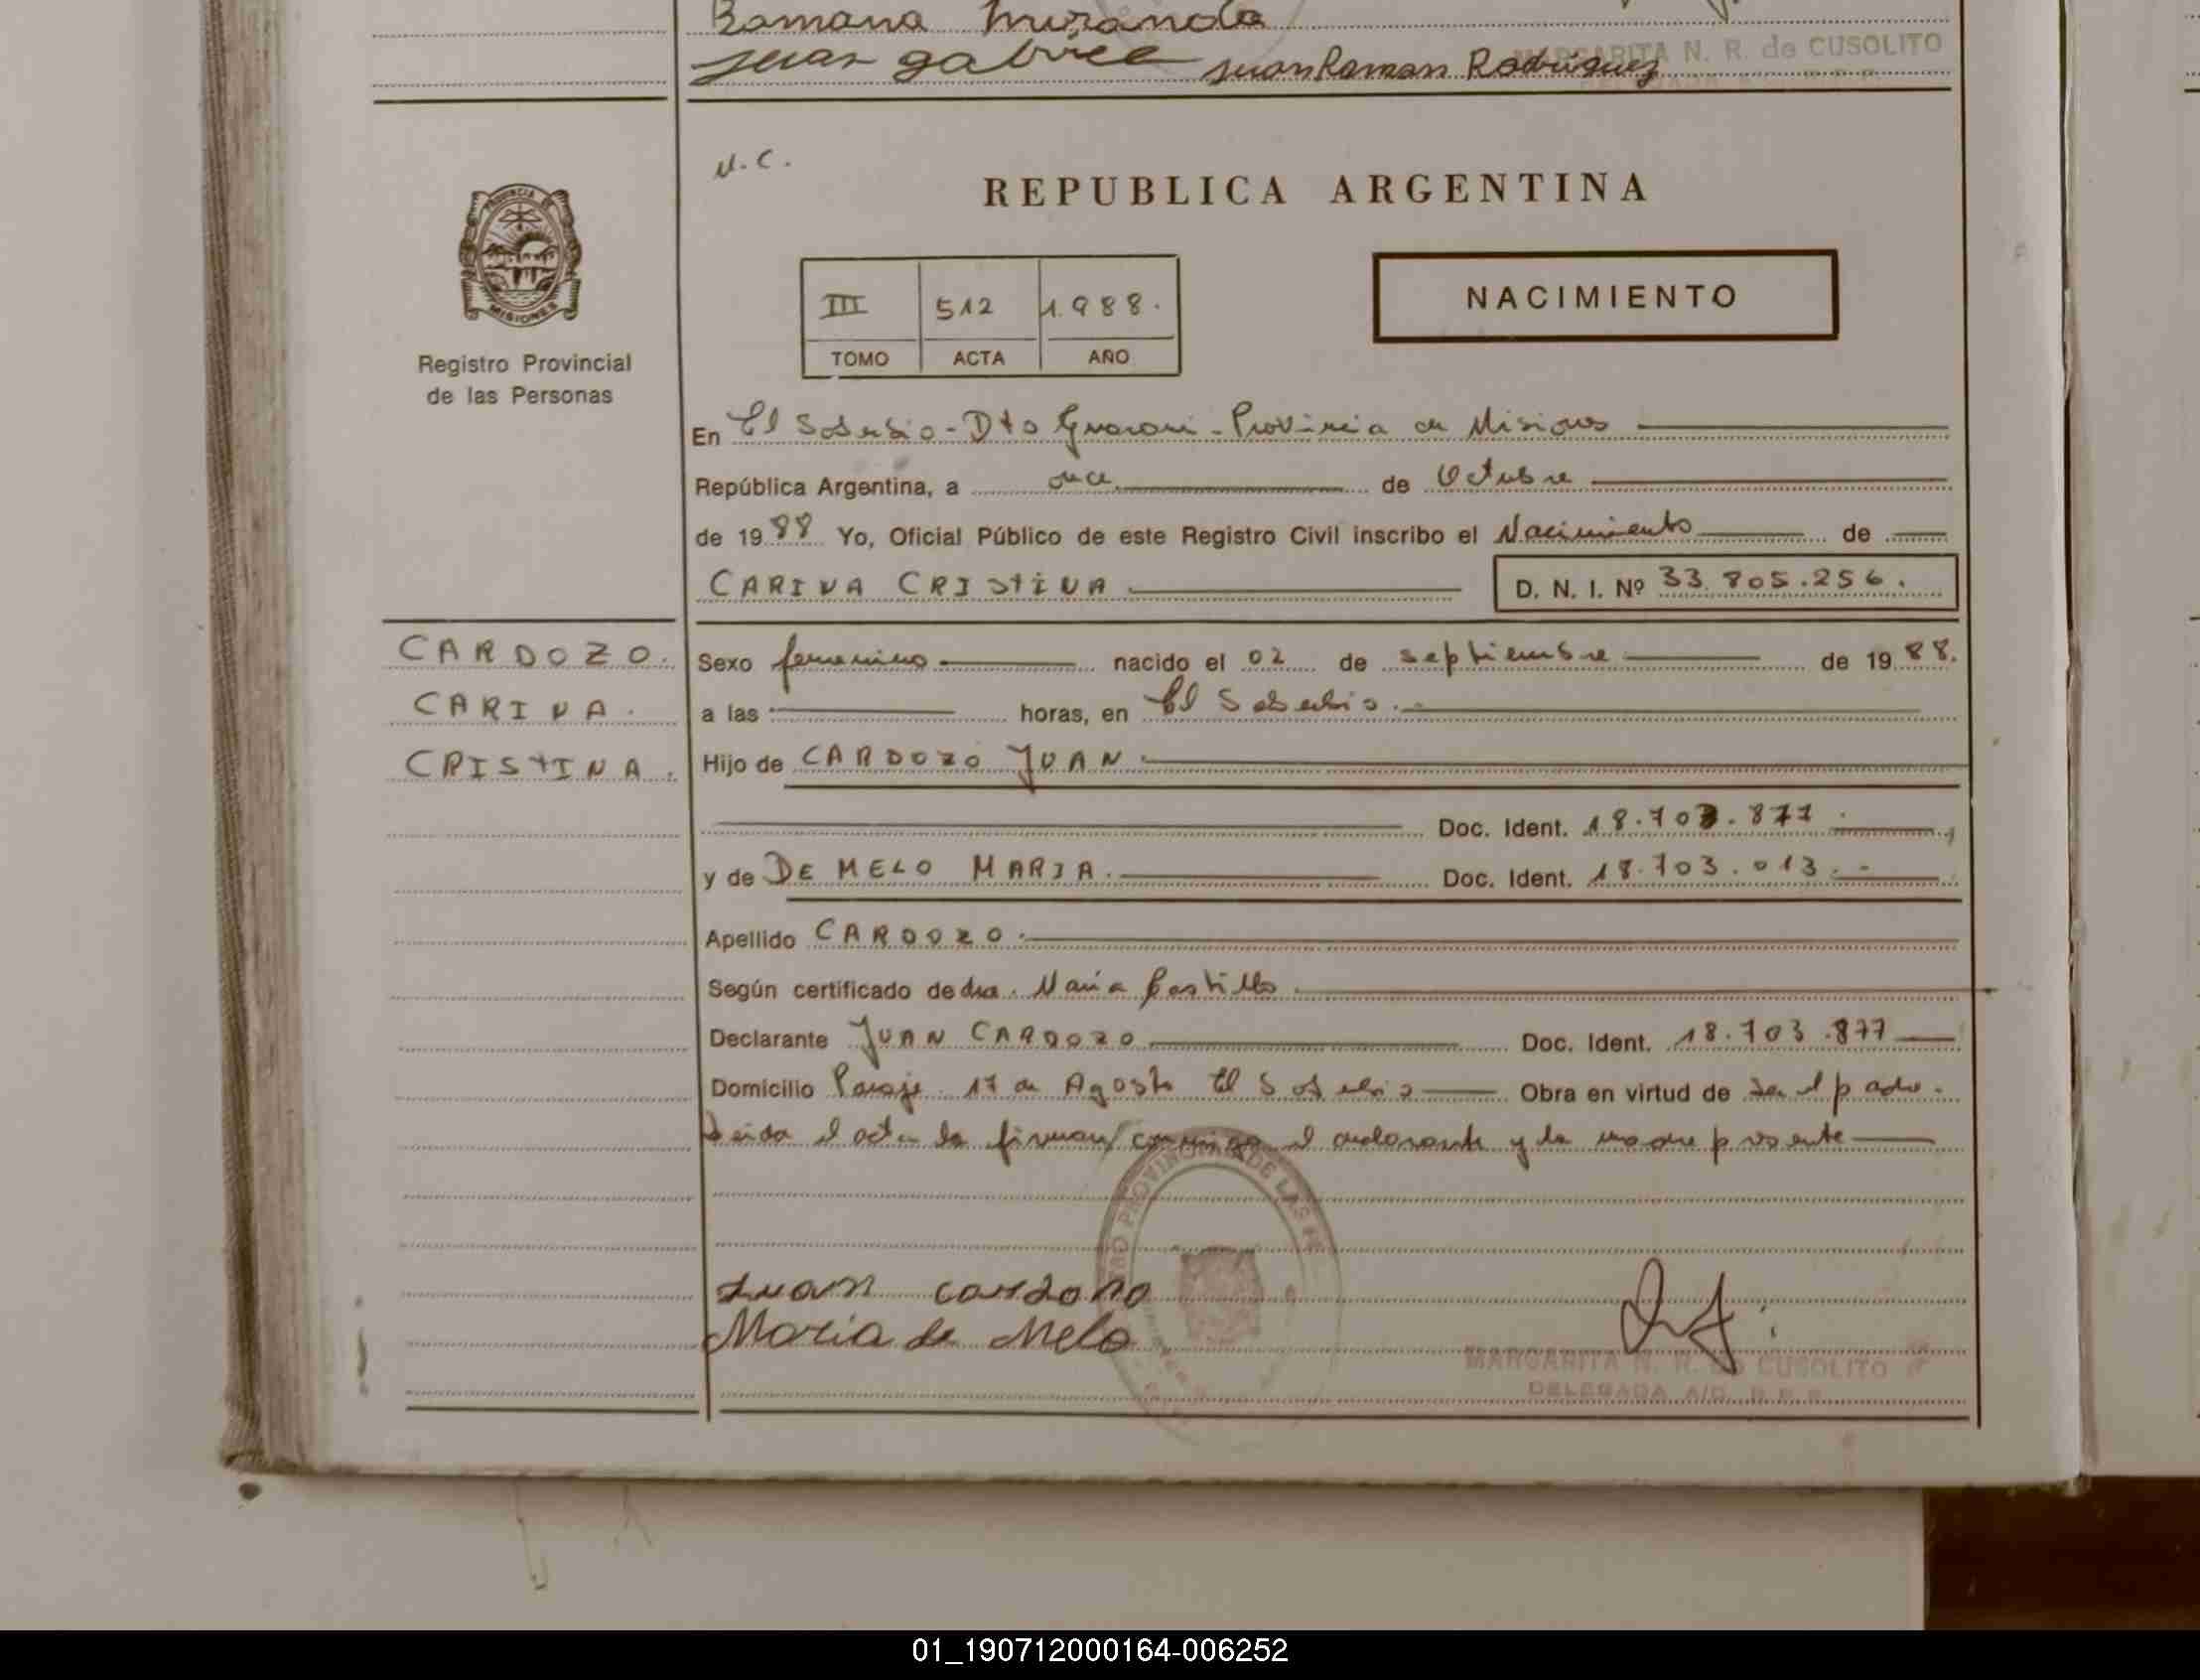 Romana Miranda
Juan gabriel Juan Raman Rodriguez
MARGARITA N. R. de CUSOLITO
N.C.
REPUBLICA ARGENTINA
PROVINCIA DE
MISIONES
Registro Provincial
de las Personas
III 512 1.988.
TOMO ACTA AÑO
NACIMIENTO
En El Soberbio - Dto Guarani - Provincia de Misiones
República Argentina, a once de Octubre
de 1988 Yo, Oficial Público de este Registro Civil inscribo el Nacimiento de
CARINA CRIStINA D. N. I. Nº 33.805.256.
CARDOZO.
CARINA.
CRIStINA.
Sexo femenino nacido el 02 de septiembre de 1988.
a las horas, en El Soberbio.
Hijo de CARDOZO JUAN
Doc. Ident. 18.703.877
y de DE MELO MARIA. Doc. Ident. 18.703.013.-
Apellido CARDOZO.
Según certificado de dra. Maria Castillo
Declarante JUAN CARDOZO Doc. Ident. 18.703.877
Domicilio Paraje 17 de Agosto El Soberbio Obra en virtud de ser el padre.
Leida el acta la firman conmigo el declarante y la madre presente
Juan cardozo
Maria de Melo
MARGARITA N. R. de CUSOLITO
DELEGADA A/C. R.P.P.
01_190712000164-006252